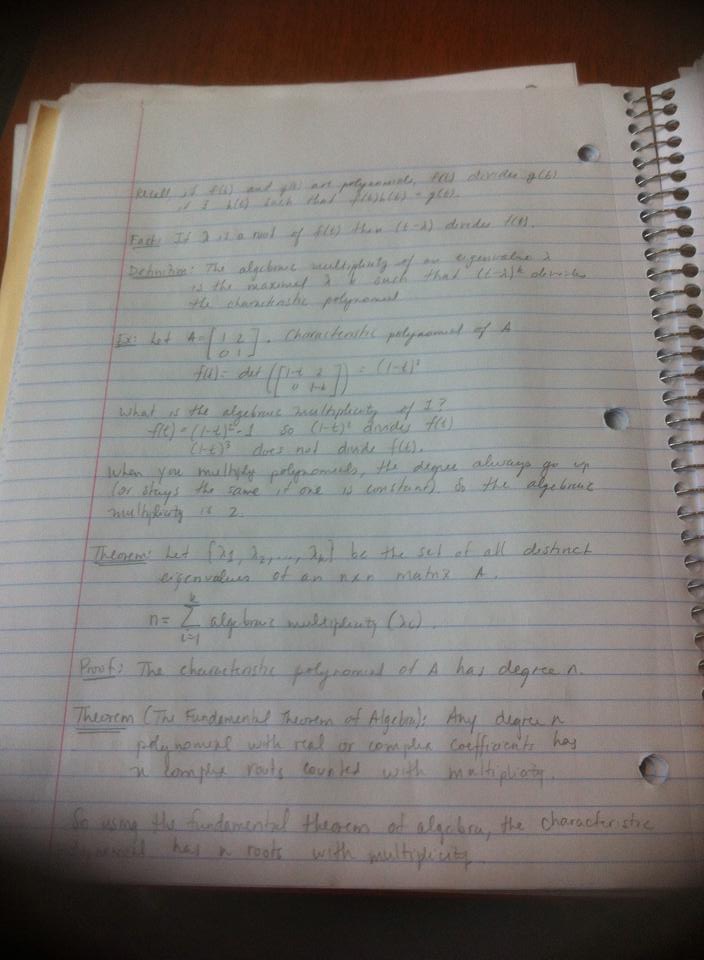 Recall if f(t) and g(t) are polynomials, f(t) divides g(t)
if ∃ h(t) such that f(t)h(t) = g(t).
Fact: If λ is a root of f(t) then (t-λ) divides f(t).
Definition: The algebraic multiplicity of an eigenvalue λ
is the maximal k such that (t-λ)^k divides
the characteristic polynomial
Ex: Let A = [1 2
0 1]. Characteristic polynomial of A
f(t) = det ([1-t 2
0 1-t]) = (1-t)²
What is the algebraic multiplicity of 1?
f(t) = (1-t)²·1 so (1-t)² divides f(t)
(1-t)³ does not divide f(t).
When you multiply polynomials, the degree always go up
(or stays the same if one is constant). So the algebraic
multiplicity is 2.
Theorem: Let {λ1, λ2, ..., λk} be the set of all distinct
eigenvalues of an n×n matrix A.
n = k Σ i=1 algebraic multiplicity (λi).
Proof: The characteristic polynomial of A has degree n.
Theorem (The Fundamental Theorem of Algebra): Any degree n
polynomial with real or complex coefficients has
n complex roots counted with multiplicity.
So using the fundamental theorem of algebra, the characteristic
has n roots with multiplicity.